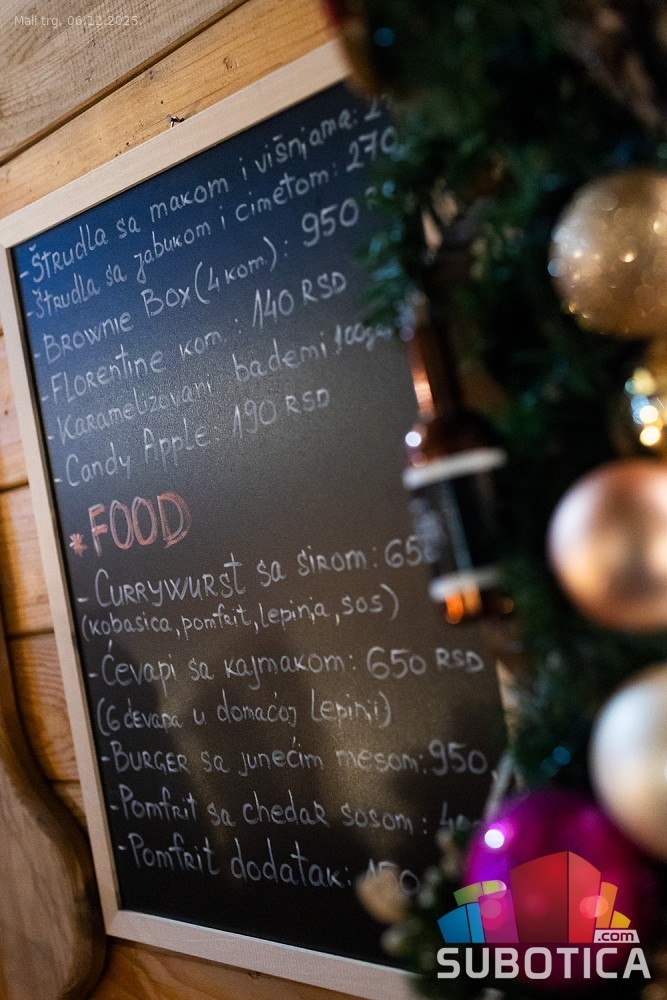 Mali trg, 06.12.2025.
-Štrudla sa makom i višnjama:
-Štrudla sa jabukom i cimetom: 270
-Brownie Box (4 kom.): 950
-Florentine kom.: 140 RSD
-Karamelizovani bademi 100gr
-Candy Apple: 190 RSD
*FOOD
-Currywurst sa sirom: 650
(kobasica, pomfrit, lepinja, sos)
-Ćevapi sa kajmakom: 650 RSD
(6 ćevapa u domaćoj lepinji)
-Burger sa junećim mesom: 950,
-Pomfrit sa chedar sosom:
-Pomfrit dodatak: 150
.com
SUBOTICA